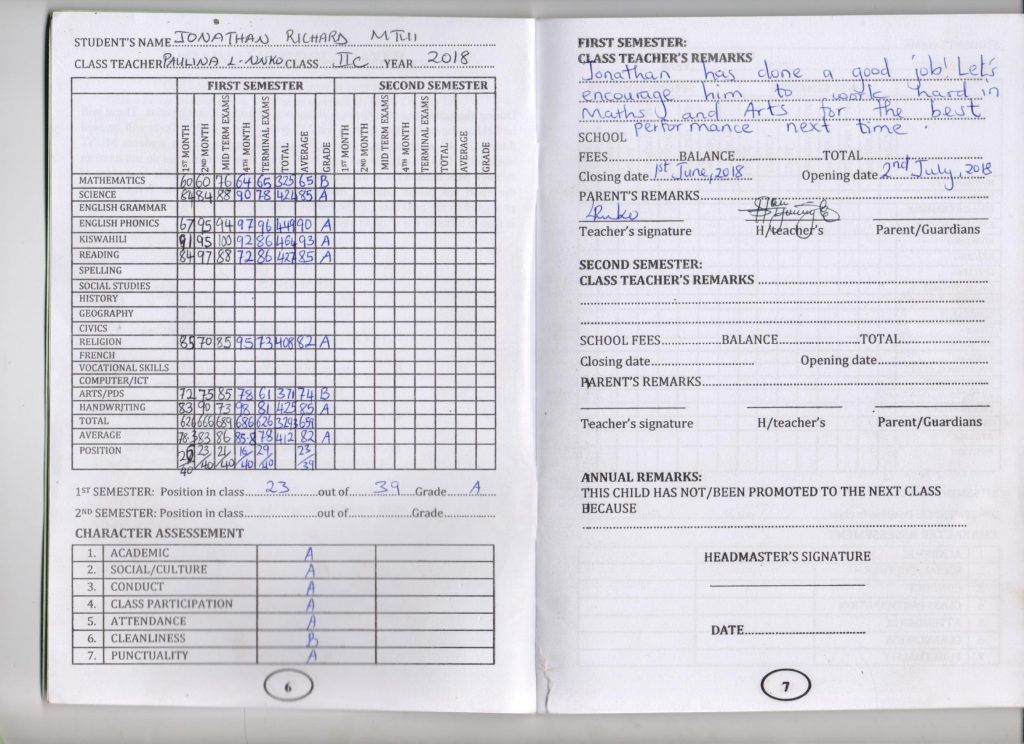 STUDENT'S NAME JONATHAN RICHARD MTUI
CLASS TEACHER PAULINA L-NNKO CLASS IIC YEAR 2018
FIRST SEMESTER SECOND SEMESTER
1ST MONTH 2ND MONTH MID TERM EXAMS 4TH MONTH TERMINAL EXAMS TOTAL AVERAGE GRADE 1ST MONTH 2ND MONTH MID TERM EXAMS 4TH MONTH TERMINAL EXAMS TOTAL AVERAGE GRADE
MATHEMATICS 60 60 76 64 65 325 65 B
SCIENCE 84 84 88 90 78 424 85 A
ENGLISH GRAMMAR
ENGLISH PHONICS 67 95 94 97 96 449 90 A
KISWAHILI 91 95 100 92 86 464 93 A
READING 84 97 88 72 86 427 85 A
SPELLING
SOCIAL STUDIES
HISTORY
GEOGRAPHY
CIVICS
RELIGION 85 70 85 95 73 408 82 A
FRENCH
VOCATIONAL SKILLS
COMPUTER/ICT
ARTS/PDS 72 75 85 78 61 371 74 B
HANDWRITING 83 90 73 98 81 425 85 A
TOTAL 626 666 689 686 626 3293 659
AVERAGE 78.3 83 86 85.8 78 412 82 A
POSITION 26/40 23/40 21/40 16/40 29/40 23/39
1ST SEMESTER: Position in class 23 out of 39 Grade A
2ND SEMESTER: Position in class out of Grade
CHARACTER ASSESSEMENT
1. ACADEMIC A
2. SOCIAL/CULTURE A
3. CONDUCT A
4. CLASS PARTICIPATION A
5. ATTENDANCE A
6. CLEANLINESS B
7. PUNCTUALITY A
6
FIRST SEMESTER:
CLASS TEACHER'S REMARKS
Jonathan has done a good job! Let's
encourage him to work hard in
Maths and Arts for the best
performance next time.
SCHOOL
FEES BALANCE TOTAL
Closing date 1st June, 2018 Opening date 2nd July, 2018
PARENT'S REMARKS
Teacher's signature H/teacher's Parent/Guardians
SECOND SEMESTER:
CLASS TEACHER'S REMARKS
SCHOOL FEES BALANCE TOTAL
Closing date Opening date
PARENT'S REMARKS
Teacher's signature H/teacher's Parent/Guardians
ANNUAL REMARKS:
THIS CHILD HAS NOT/BEEN PROMOTED TO THE NEXT CLASS
BECAUSE
HEADMASTER'S SIGNATURE
DATE
7